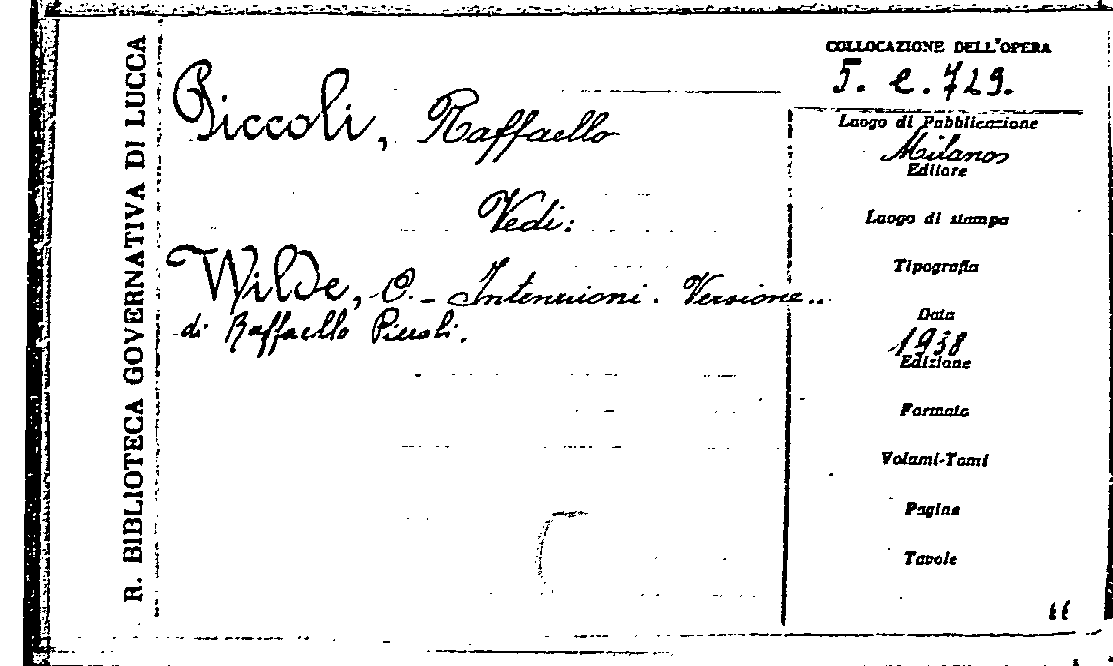 R. BIBLIOTECA GOVERNATIVA DI LUCCA
Piccoli, Raffaello
Vedi:
Wilde, O. - Intenzioni. Versione
di Raffaello Piccoli.
COLLOCAZIONE DELL'OPERA
5. e. 729.
Luogo di Pubblicazione
Milano
Editore
Luogo di stampa
Tipografia
Data
1938
Edizione
Formato
Volumi-Tomi
Pagine
Tavole